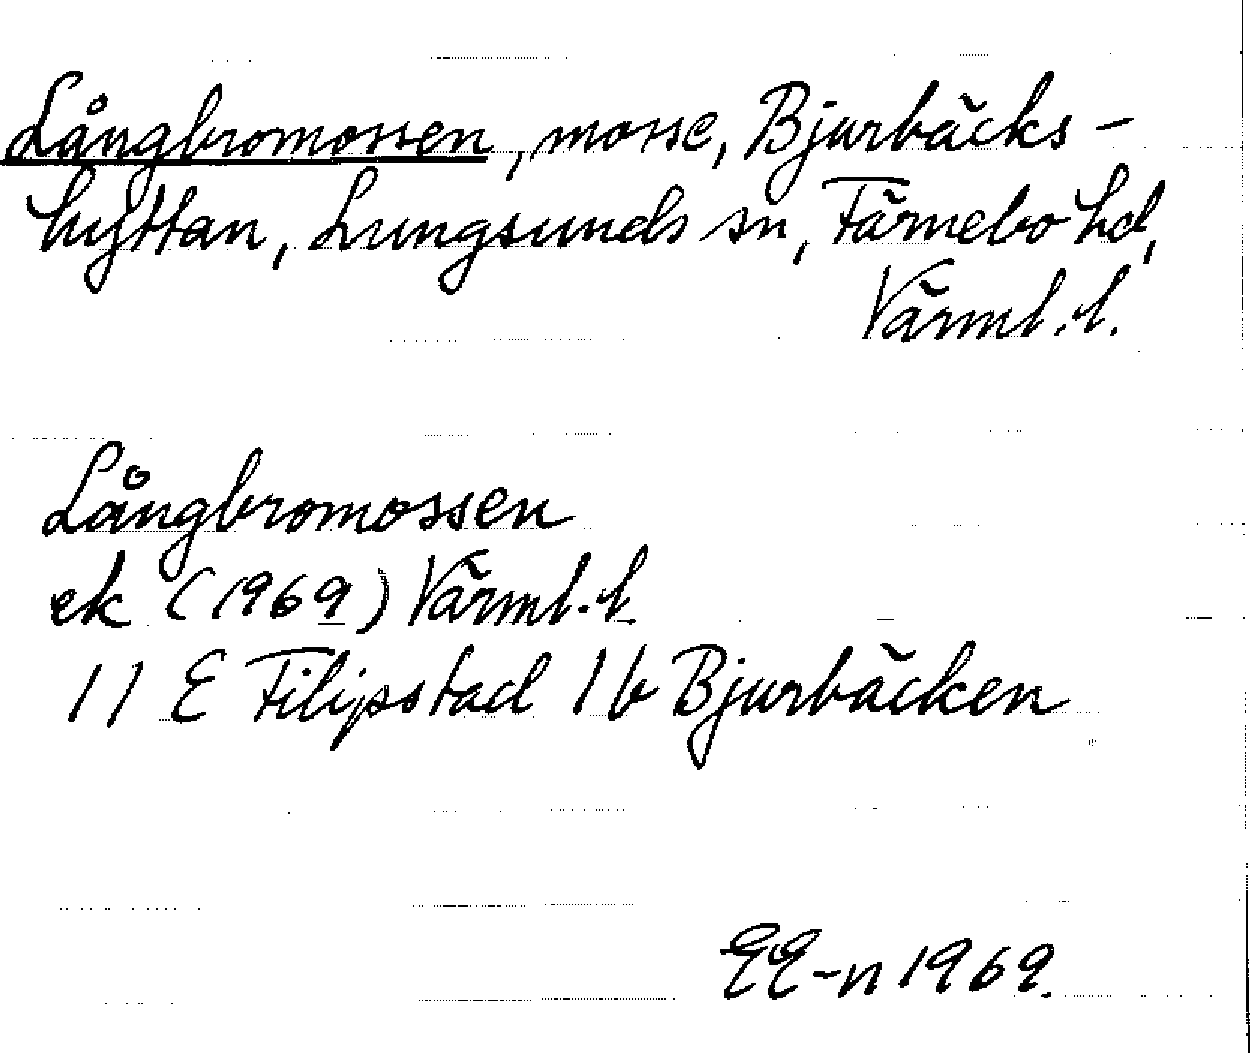 Långbromossen, mosse, Bjurbäcks-
hyttan, Lungsunds sn, Färnebo hd,
Värml. l.
Långbromossen
ek (1969) Värml. l.
11 E Filipstad 1 b Bjurbäcken
EE-n 1969.